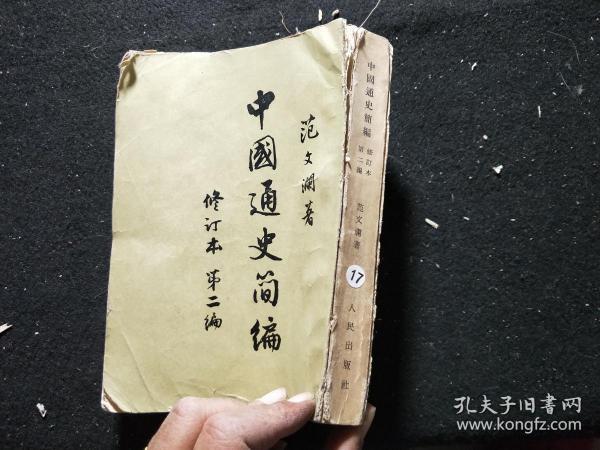 范文瀾著
中國通史简编
修订本 第二编
中國通史簡編
修訂本
第二編
范文瀾著
17
人民出版社
孔夫子旧书网
www.kongfz.com